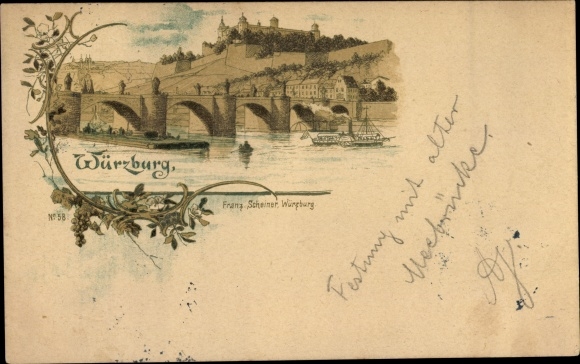 Würzburg,
Franz Scheiner, Würzburg
No 58
Festung mit alter